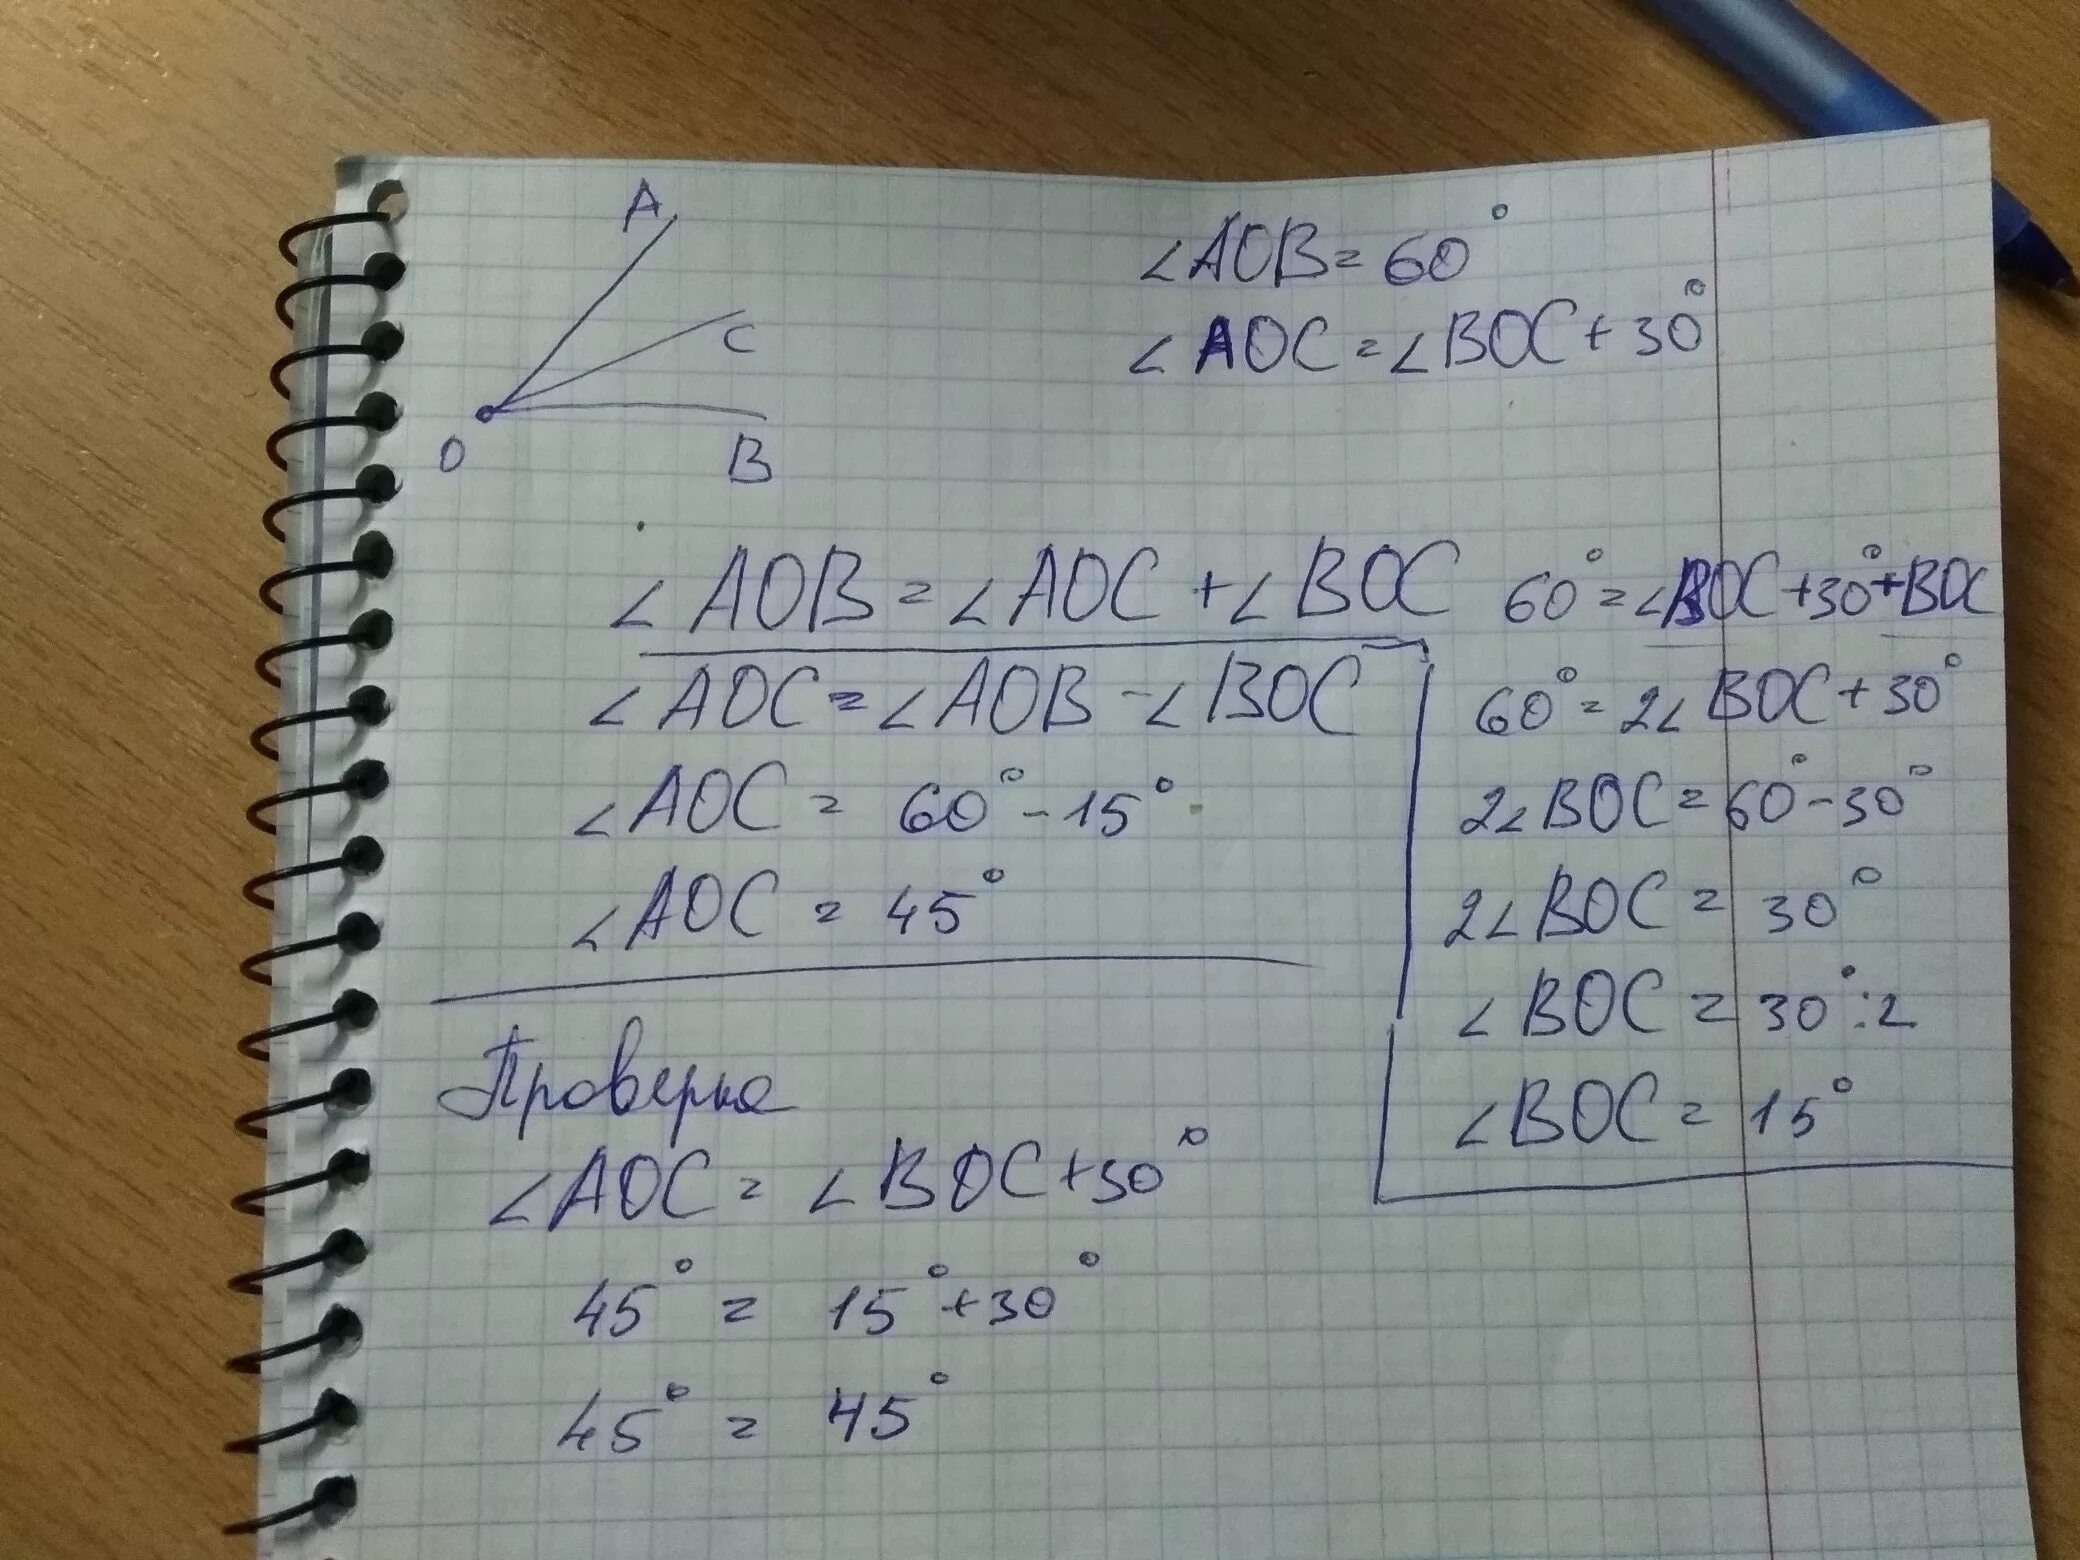 A
C
O
B
∠AOB = 60°
∠AOC = ∠BOC + 30°
∠AOB = ∠AOC + ∠BOC
∠AOC = ∠AOB - ∠BOC
∠AOC = 60° - 15°
∠AOC = 45°
60° = ∠BOC + 30° + BOC
60° = 2∠BOC + 30°
2∠BOC = 60° - 30°
2∠BOC = 30°
∠BOC = 30° : 2
∠BOC = 15°
Проверка
∠AOC = ∠BOC + 30°
45° = 15° + 30°
45° = 45°